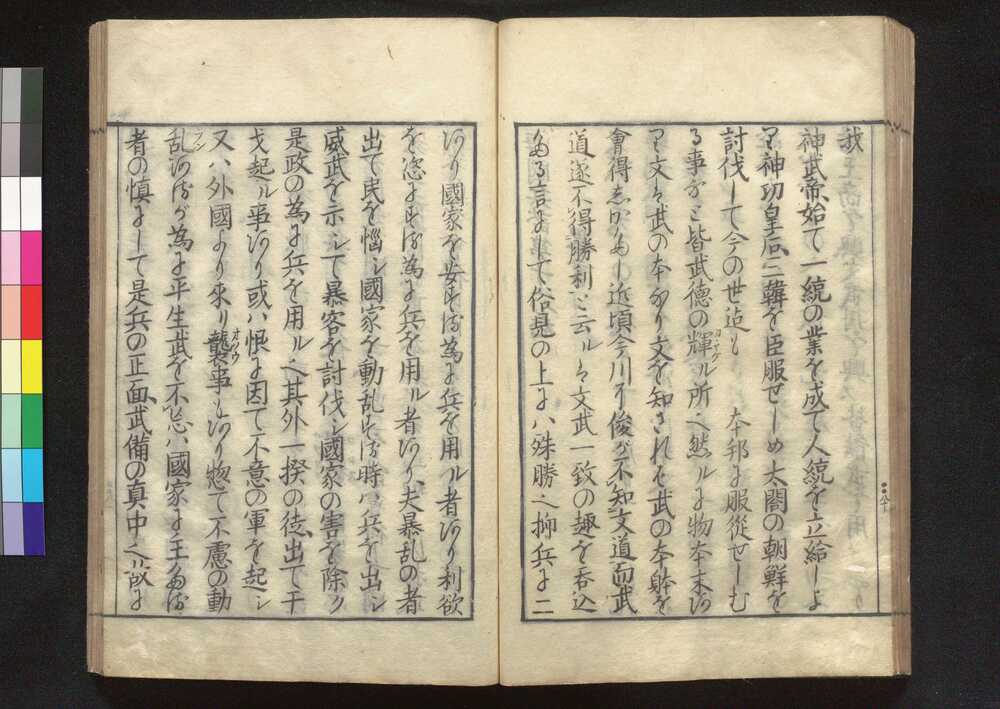 神武帝、始て一統の業を成て人統を立給しよ
り神功皇后、三韓を臣服せしめ太閤の朝鮮を
討伐して今の世迄も 本邦に服従せしむ
る事など皆武徳の輝ル所ヘ然ルに物本末あ
り文は武の本なり文を知されは武の本躰を
會得しがたし近頃今川了俊が不知文道而武
道遂不得勝利と云ルは文武一致の趣を吞込
たる言にして、俗見の上にハ殊勝ヘ抑兵に二
あり國家を安する為に兵を用ル者あり利欲
を恣にする為に兵を用ル者あり、夫暴乱の者
出て民を惱シ國家を動乱する時ハ兵を出シ
威武を示シて暴客を討伐シ國家の害を除ク
是政の為に兵を用ルヘ其外一揆の徒、出て干
戈起ル事あり或ハ恨に因て不意の軍を起シ
又ハ外國より來り襲事もあり惣て不慮の動
乱あるが為に平生武を不忘ハ國家に主たる
者の慎にして是兵の正面、武備の真中ヘ故に